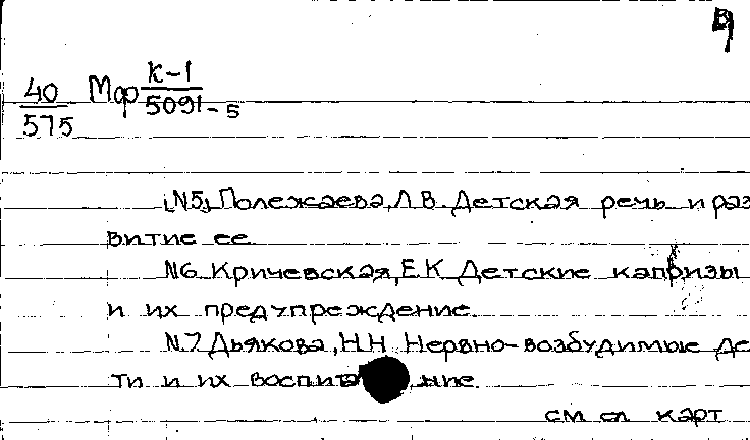 В
40 Мф К-1
575 5091-5
[N5] Полежаева, Л.В. Детская речь и раз
витие ее.
N6 Кричевская, Е.К Детские капризы
и их предупреждение.
N.7 Дьякова, Н.Н. Нервно-возбудимые де
ти и их воспита ние.
см сл карт